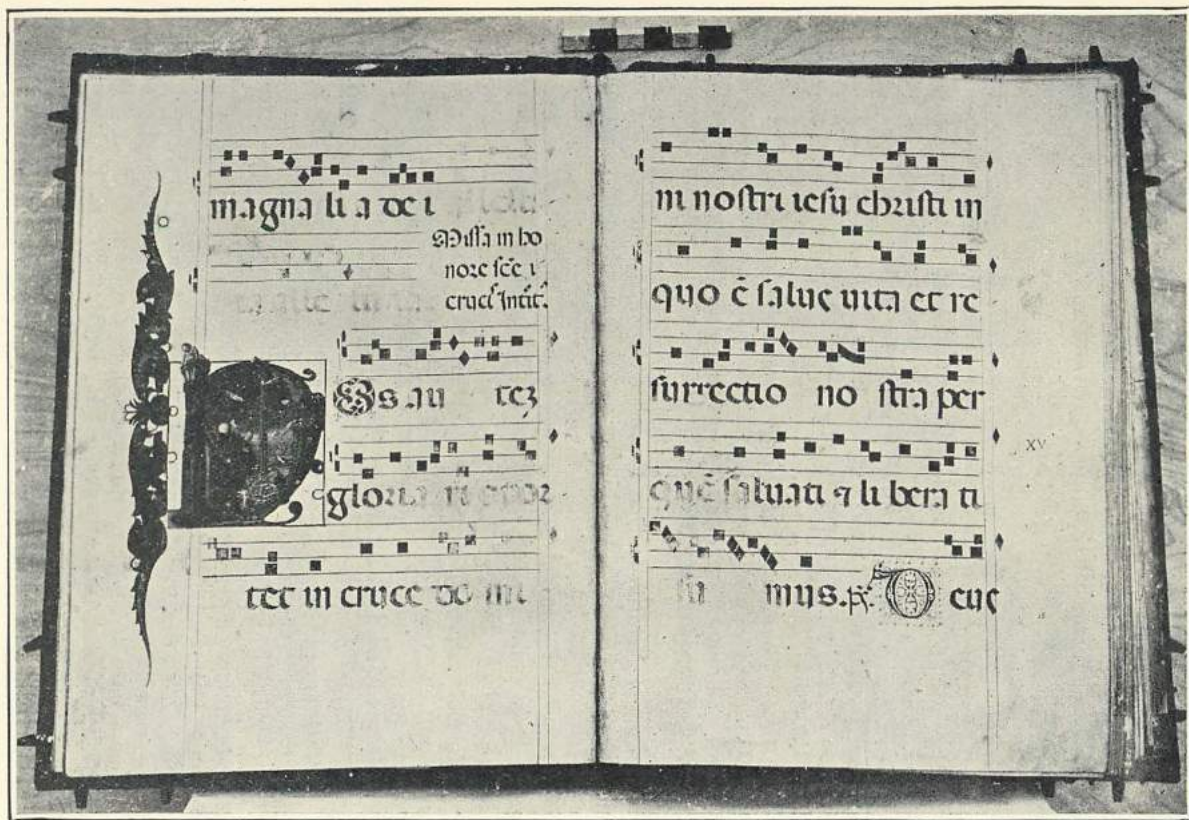 magna li a de i
Missa in ho
nore scē
crucꝭ Intit.
Os au tez
gloria ri e por
tet in cruce do mi
ni nostri iesu christi in
quo ē salus uita et re
surrectio no stra per
quē saluati ⁊ li bera ti
su mus. ps. D eus
XV